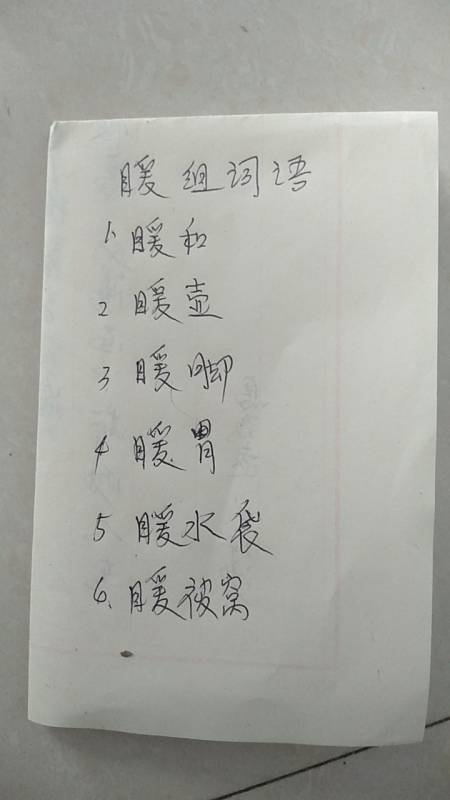 暖组词语
1、暖和
2 暖壶
3 暖脚
4 暖胃
5 暖水袋
6、暖被窝